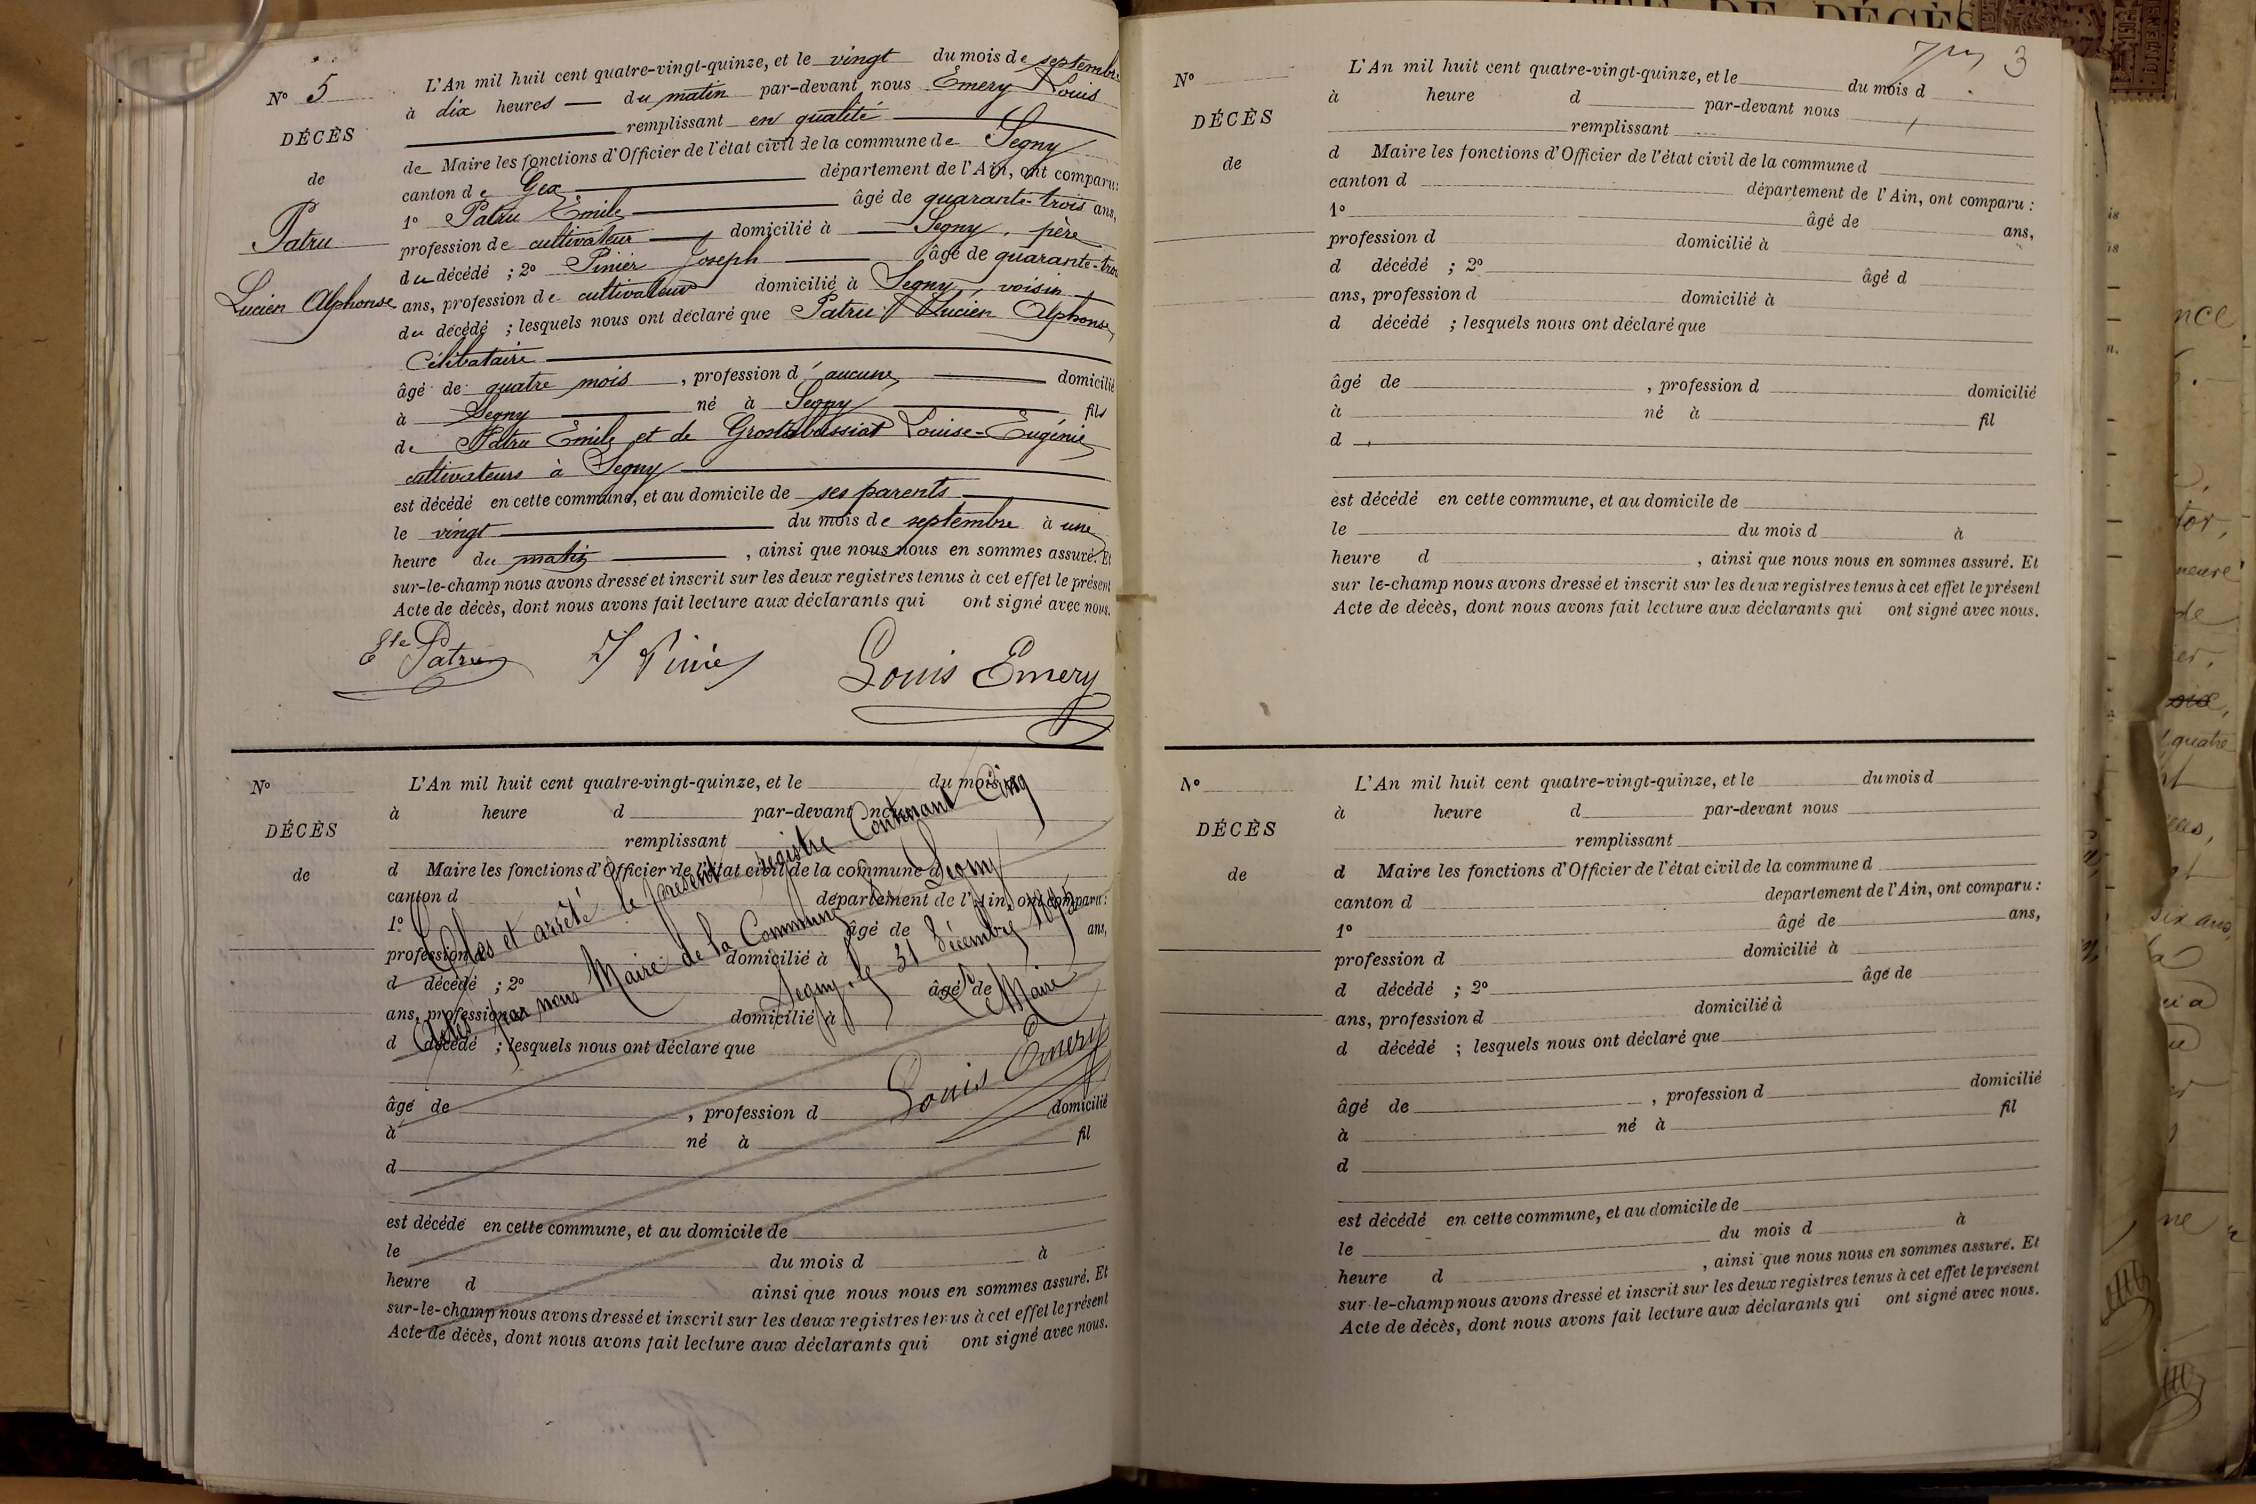 N° 5
DÉCÈS
de
Patru
Lucien Alphonse
L'An mil huit cent quatre-vingt-quinze, et le vingt du mois de septembre
à dix heures du matin par-devant nous Emery Louis
remplissant en qualité
de Maire les fonctions d'Officier de l'état civil de la commune de Segny
canton de Gex département de l'Ain, ont comparu:
1° Patru Emile âgé de quarante-trois ans,
profession de cultivateur domicilié à Segny, père
du décédé ; 2° Pinier Joseph âgé de quarante-trois
ans, profession de cultivateur domicilié à Segny, voisin
du décédé ; lesquels nous ont déclaré que Patru Lucien Alphonse,
Célibataire
âgé de quatre mois , profession d aucune, domicilié
à Segny né à Segny fils
de Patru Emile et de Louise-Eugénie
cultivateurs à Segny
est décédé en cette commune, et au domicile de ses parents
le vingt du mois de septembre à une
heure du matin , ainsi que nous nous en sommes assuré. Et
sur-le-champ nous avons dressé et inscrit sur les deux registres tenus à cet effet le présent
Acte de décès, dont nous avons fait lecture aux déclarants qui ont signé avec nous.
Patru
Pinier
Louis Emery
N°
DÉCÈS
de
L'An mil huit cent quatre-vingt-quinze, et le du mois
à heure d par-devant nous
remplissant
d Maire les fonctions d'Officier de l'état civil de la commune d
canton d département de l'Ain, ont comparu:
1° âgé de ans,
profession d domicilié à
d décédé ; 2° âgé de
ans, profession domicilié à
d décédé ; lesquels nous ont déclaré que
âgé de , profession d domicilié
à né à fil
d
est décédé en cette commune, et au domicile de
le du mois d à
heure d ainsi que nous nous en sommes assuré. Et
sur-le-champ nous avons dressé et inscrit sur les deux registres tenus à cet effet le présent
Acte de décès, dont nous avons fait lecture aux déclarants qui ont signé avec nous.
Clos et arrêté le présent registre Contenant Cinq
Actes par nous Maire de la Commune de Segny
Segny, le 31 Décembre 1895
Le Maire
Louis Emery
3
N°
DÉCÈS
de
L'An mil huit cent quatre-vingt-quinze, et le du mois d
à heure d par-devant nous
remplissant
d Maire les fonctions d'Officier de l'état civil de la commune d
canton d département de l'Ain, ont comparu :
1° âgé de ans,
profession d domicilié à
d décédé ; 2° âgé d
ans, profession d domicilié à
d décédé ; lesquels nous ont déclaré que
âgé de , profession d domicilié
à né à fil
d
est décédé en cette commune, et au domicile de
le du mois d à
heure d , ainsi que nous nous en sommes assuré. Et
sur le-champ nous avons dressé et inscrit sur les deux registres tenus à cet effet le présent
Acte de décès, dont nous avons fait lecture aux déclarants qui ont signé avec nous.
N°
DÉCÈS
de
L'An mil huit cent quatre-vingt-quinze, et le du mois d
à heure d par-devant nous
remplissant
d Maire les fonctions d'Officier de l'état civil de la commune d
canton d departement de l'Ain, ont comparu :
1° âgé de ans,
profession d domicilié à
d décédé ; 2° âgé de
ans, profession d domicilié à
d décédé ; lesquels nous ont déclaré que
âgé de , profession d domicilié
à né à fil
d
est décédé en cette commune, et au domicile de
le du mois d à
heure d , ainsi que nous nous en sommes assuré. Et
sur-le-champ nous avons dressé et inscrit sur les deux registres tenus à cet effet le présent
Acte de décès, dont nous avons fait lecture aux déclarants qui ont signé avec nous.